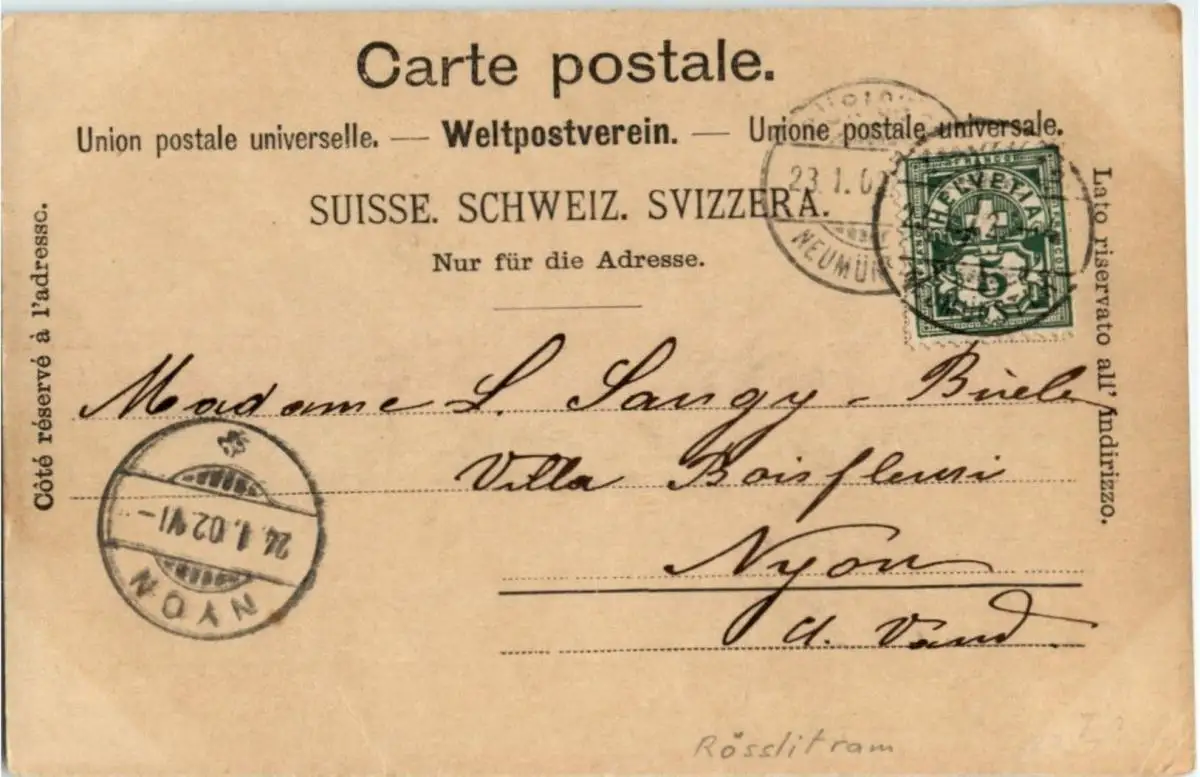 Carte postale.
Union postale universelle. — Weltpostverein. — Unione postale universale.
SUISSE. SCHWEIZ. SVIZZERA.
Nur für die Adresse.
Côté réservé à l'adresse.
Lato riservato all' indirizzo.
23. 1. 02
NEUMÜN
FRANCO
HELVETIA
5
Madame L. Sangy - Bürle
Villa Boisfleuri
Nyon
Ct. Vaud
24. 1. 02 VI -
NYON
Rösslitram